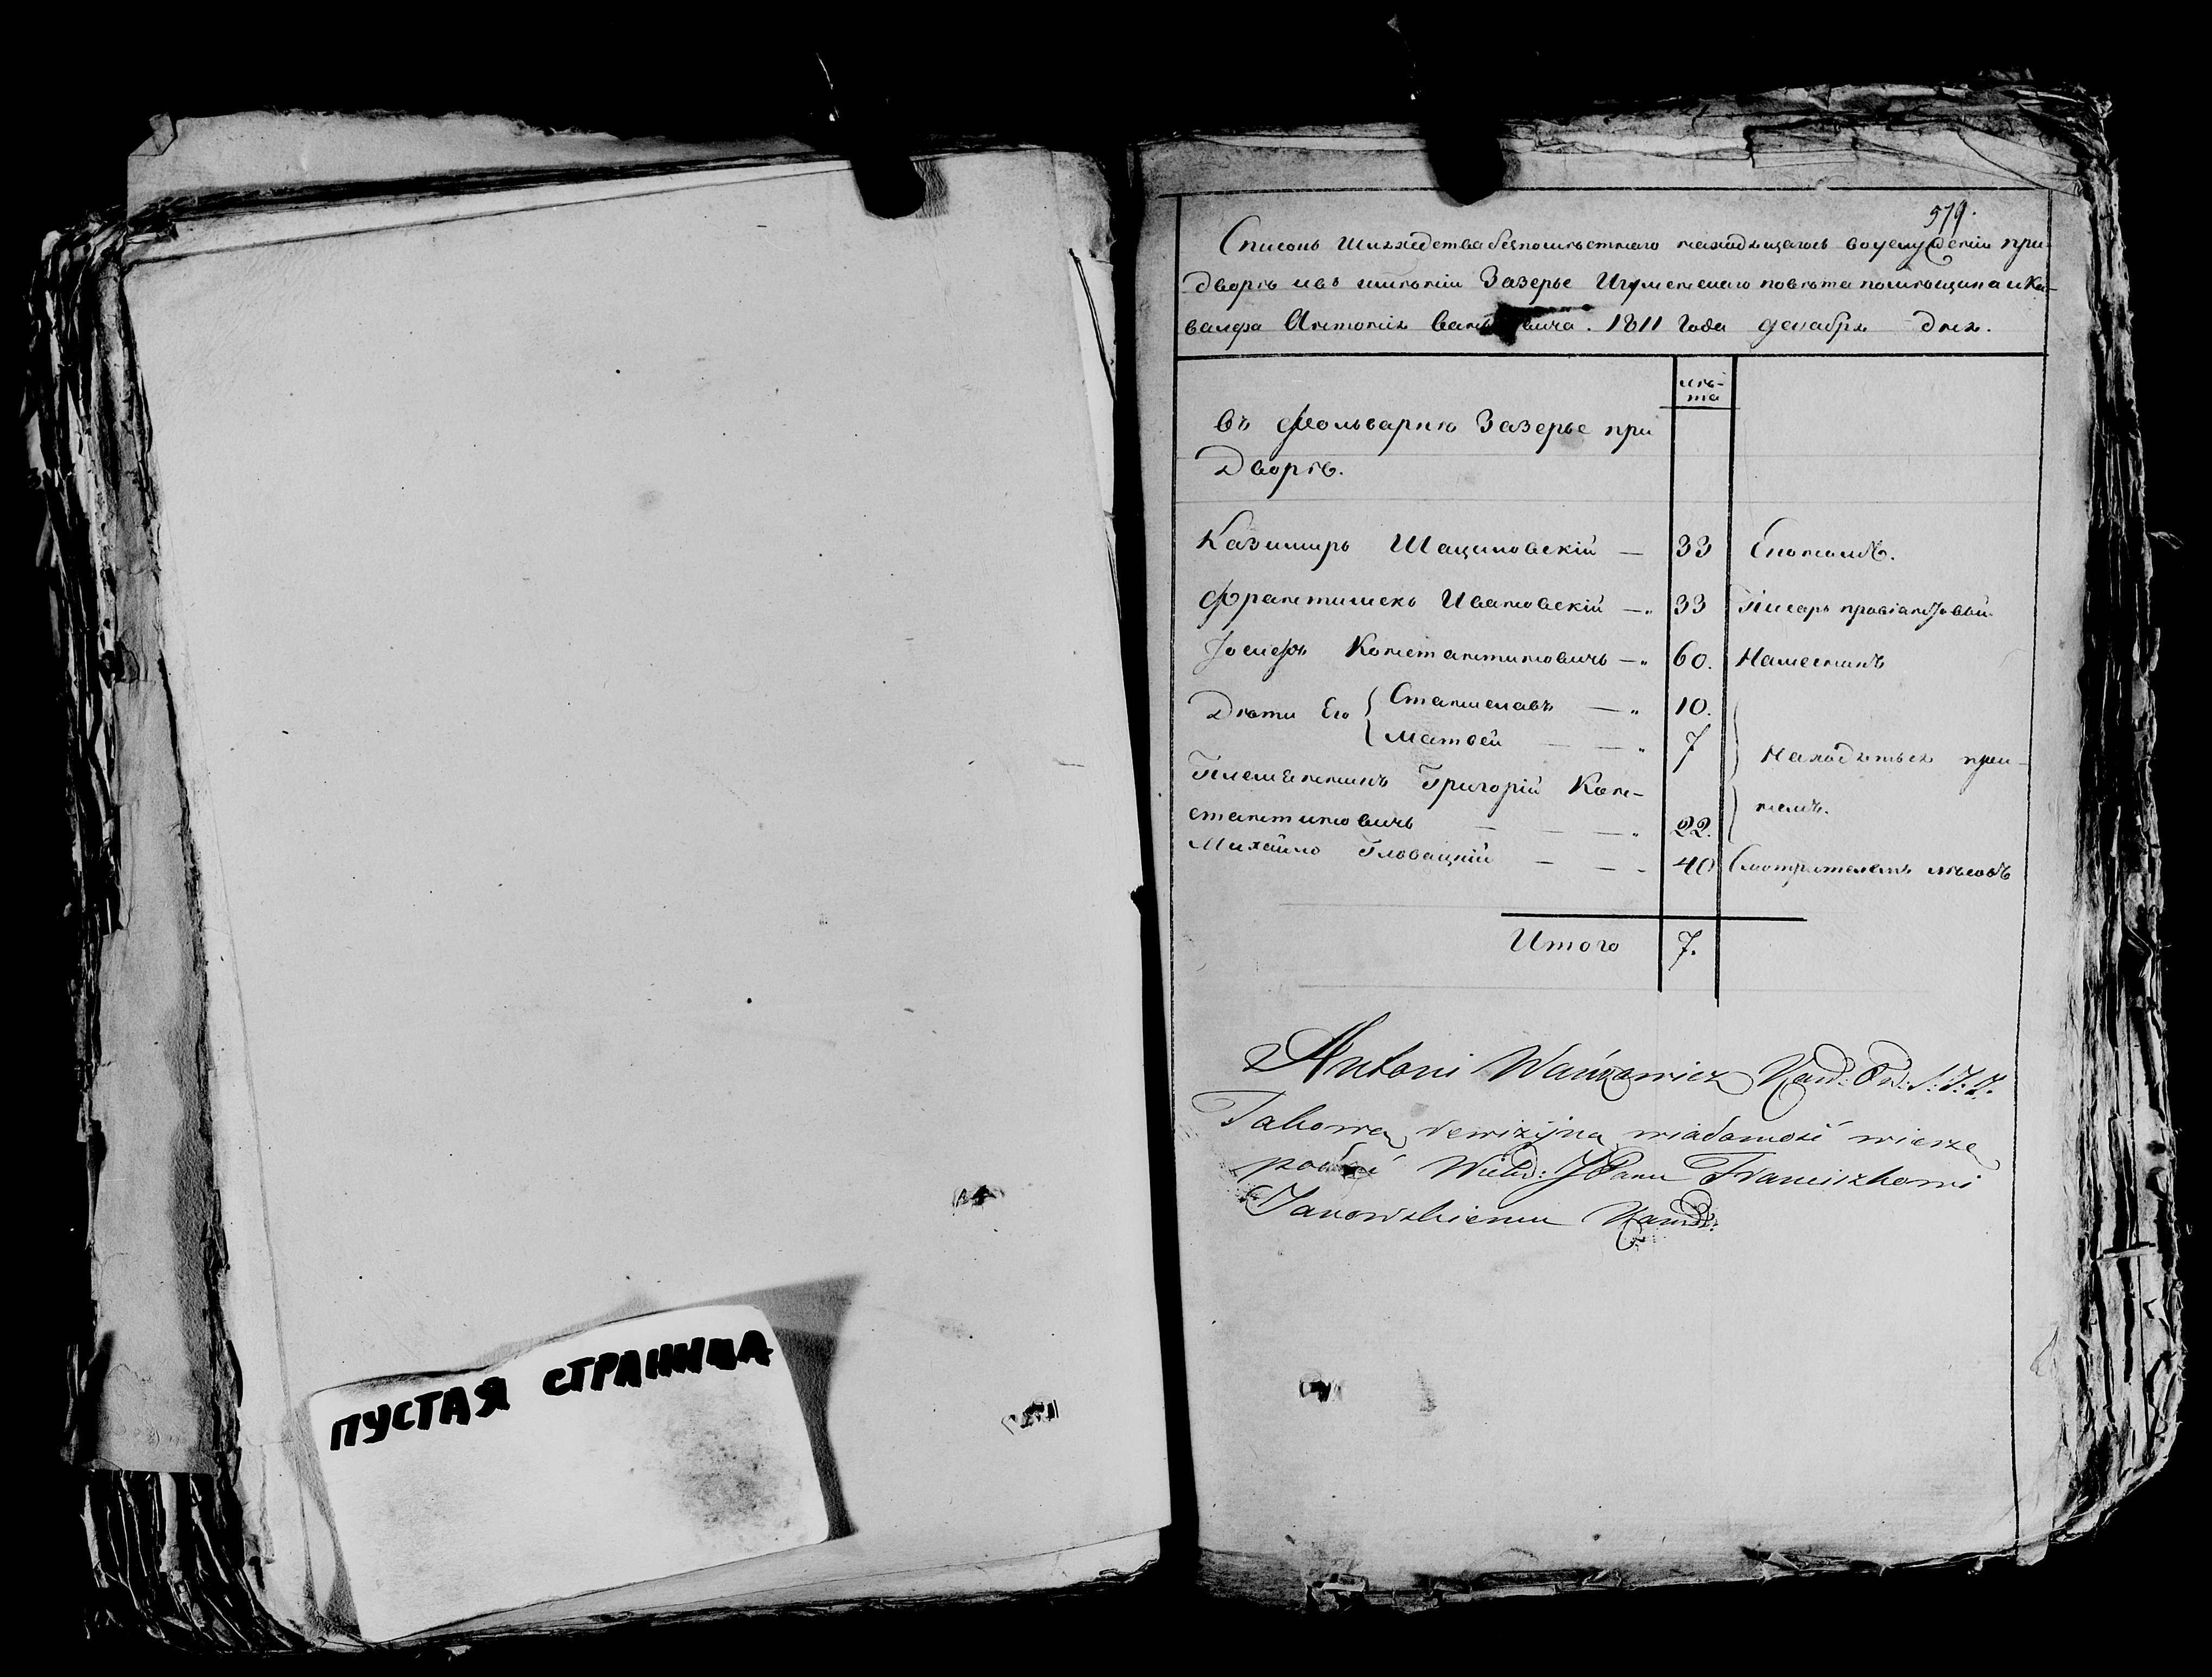 ПУСТАЯ СТРАНИЦА
579.
Списокъ Шляхедства безпоместнаго находящагось воуслуженіи при
дворѣ ивъ имѣніи Зазерье Игуменскаго повѣта помѣщика и Ка-
валера Антонія Вань вича. 1811 года декабря дня.
лѣ-
та
Въ Фольваркѣ Зазерье при
Дворѣ.
Казимиръ Шацилло́вскій — 33 Економъ.
Франтишекъ Ивановскій — 33 Писарь провіантовый
Іосифъ Константиновичъ — 60. Наместникъ
Дѣти Его { Станиславъ — 10.
Матвей — 7
Находятьсх при-
немъ.
Племенникъ Григорій Кон-
стантиновичъ — 22.
Михайло Гловацкій — 40 Смотрителемъ лѣсовъ
Итого 7.
Antoni Wańkowicz
Takową rewizyjną wiadomość wierzę
podać Wielm: JPanu Franciszkowi
Janowskiemu